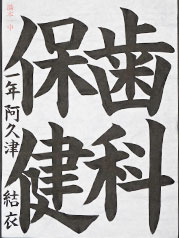 歯科
保健
一年 阿久津 結衣